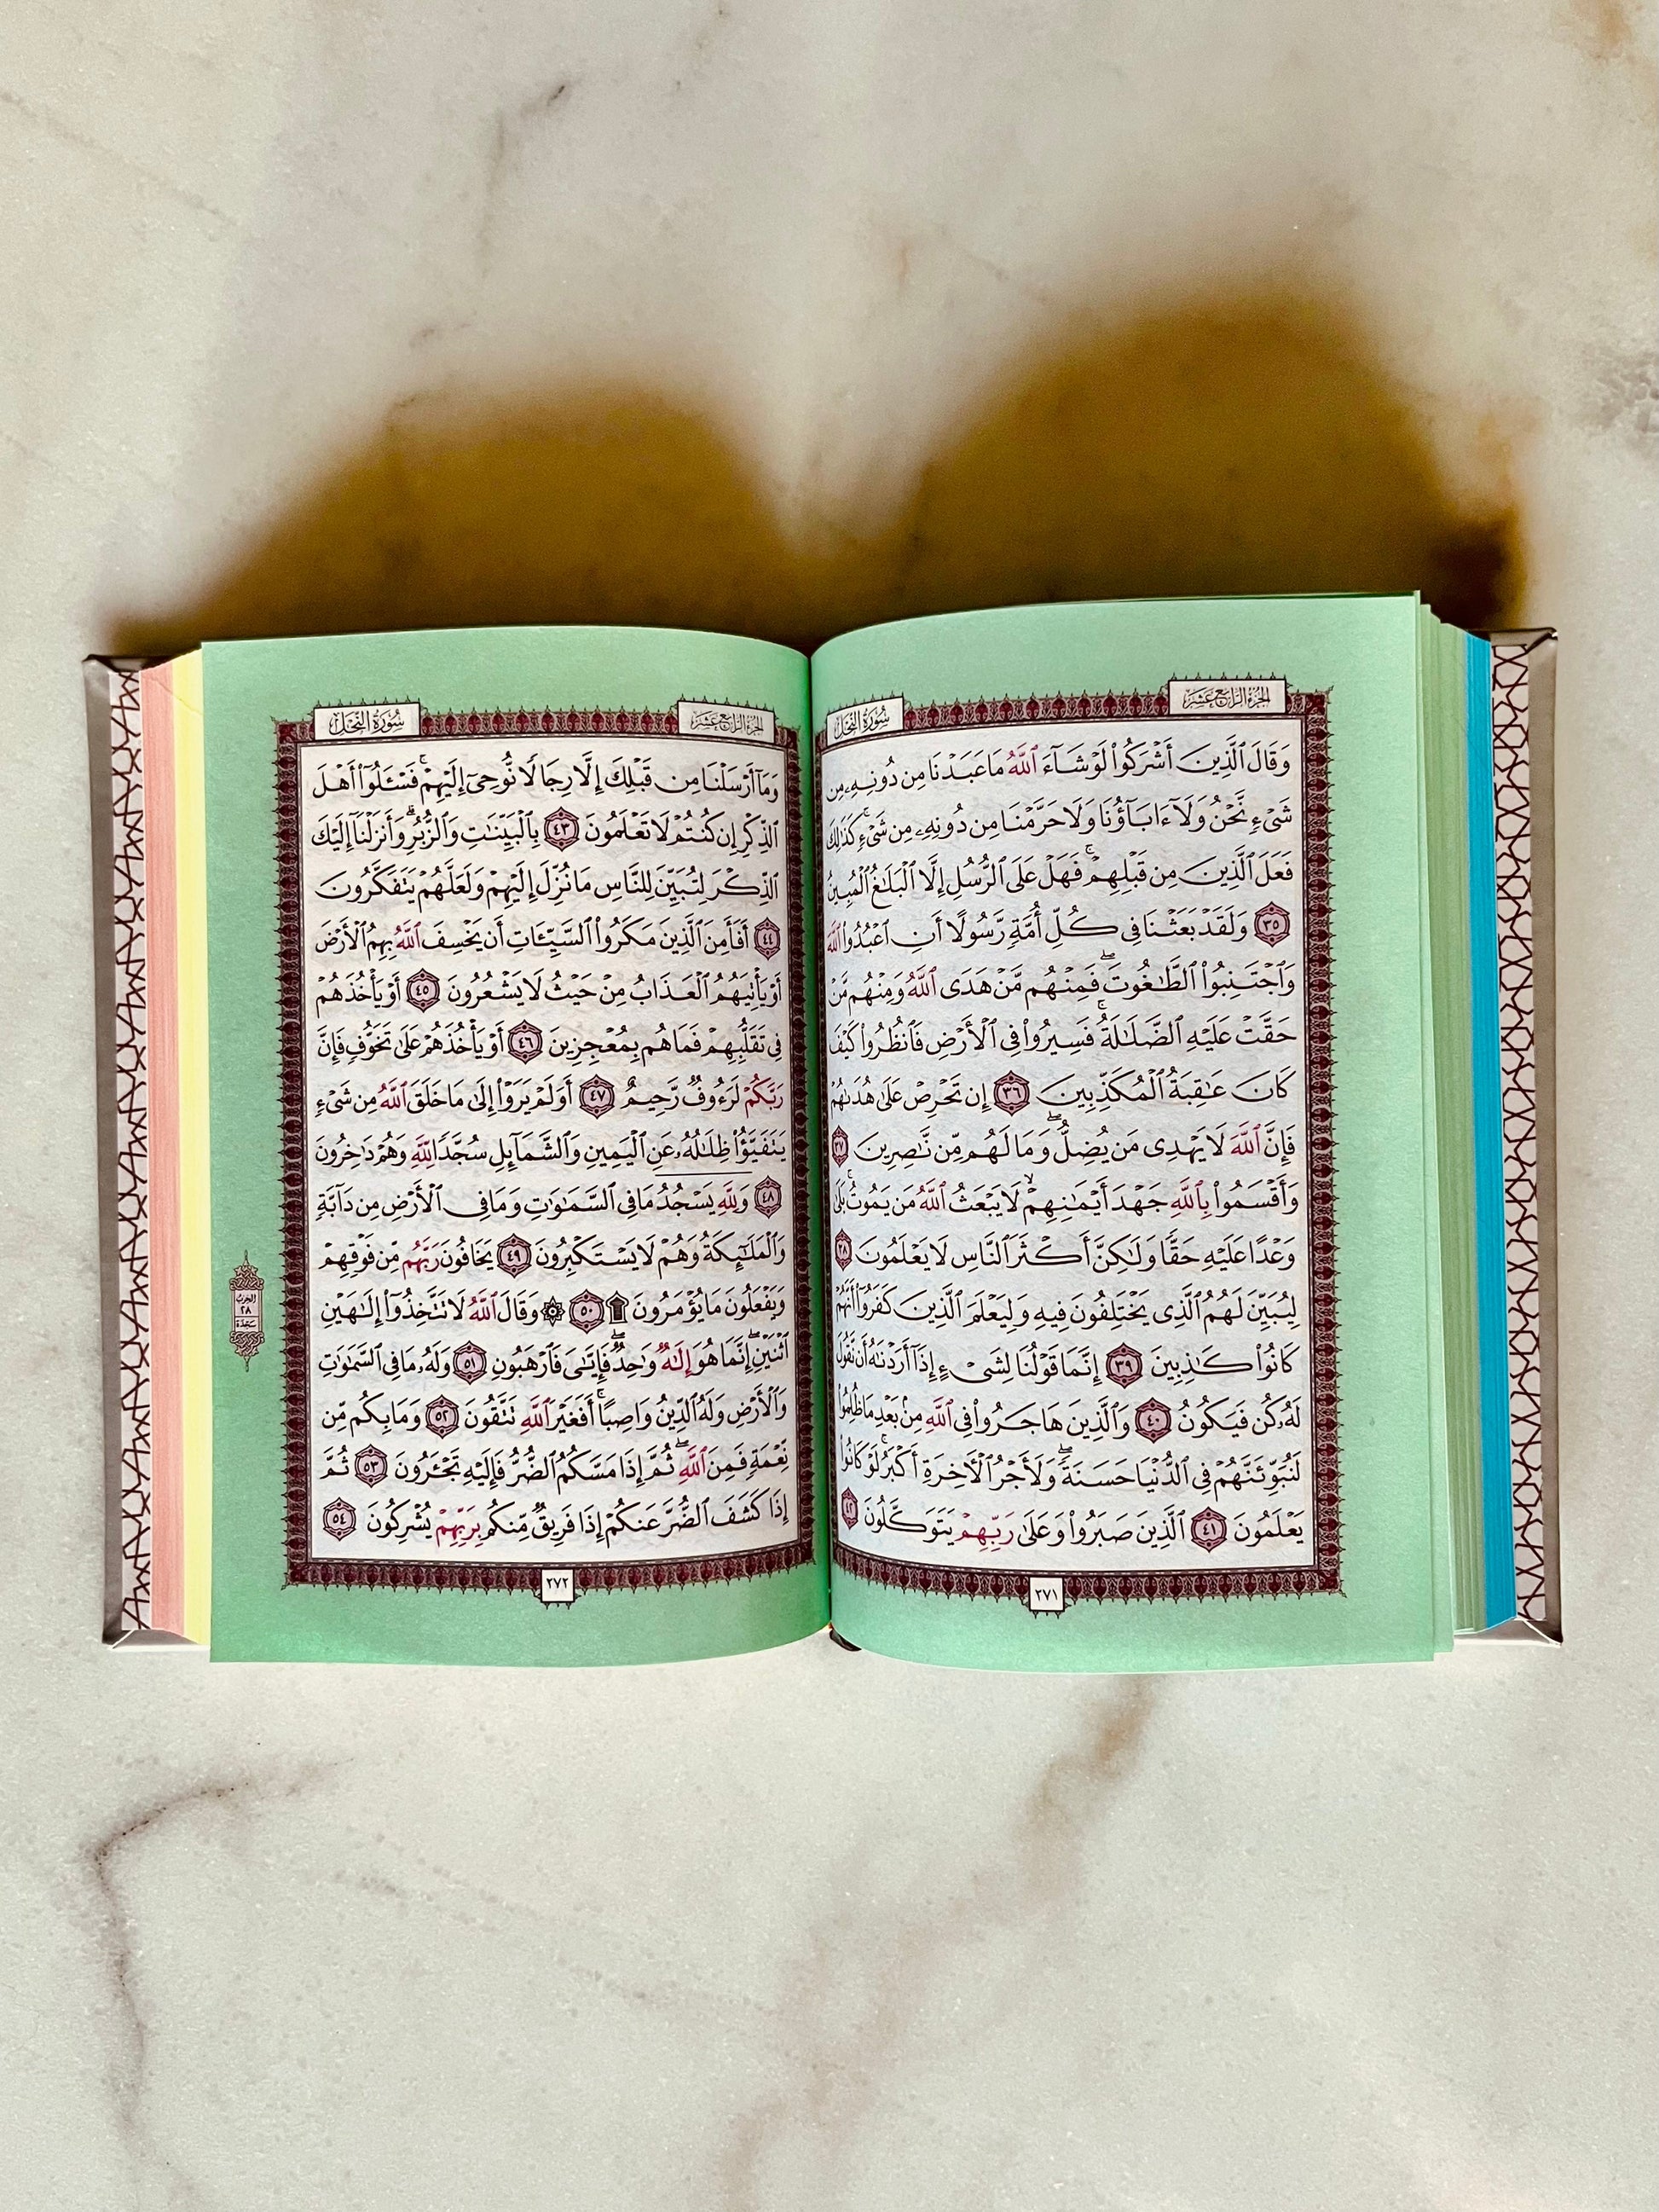 الجزء الرابع عشر
سورة النحل
وَقَالَ ٱلَّذِينَ أَشْرَكُوا۟ لَوْ شَآءَ ٱللَّهُ مَا عَبَدْنَا مِن دُونِهِۦ مِن
شَىْءٍ نَّحْنُ وَلَآ ءَابَآؤُنَا وَلَا حَرَّمْنَا مِن دُونِهِۦ مِن شَىْءٍ ۚ كَذَٰلِكَ
فَعَلَ ٱلَّذِينَ مِن قَبْلِهِمْ ۚ فَهَلْ عَلَى ٱلرُّسُلِ إِلَّا ٱلْبَلَٰغُ ٱلْمُبِينُ
٣٥ وَلَقَدْ بَعَثْنَا فِى كُلِّ أُمَّةٍ رَّسُولًا أَنِ ٱعْبُدُوا۟ ٱللَّهَ
وَٱجْتَنِبُوا۟ ٱلطَّٰغُوتَ ۖ فَمِنْهُم مَّنْ هَدَى ٱللَّهُ وَمِنْهُم مَّنْ
حَقَّتْ عَلَيْهِ ٱلضَّلَٰلَةُ ۚ فَسِيرُوا۟ فِى ٱلْأَرْضِ فَٱنظُرُوا۟ كَيْفَ
كَانَ عَٰقِبَةُ ٱلْمُكَذِّبِينَ ٣٦ إِن تَحْرِصْ عَلَىٰ هُدَىٰهُمْ
فَإِنَّ ٱللَّهَ لَا يَهْدِى مَن يُضِلُّ ۖ وَمَا لَهُم مِّن نَّٰصِرِينَ ٣٧
وَأَقْسَمُوا۟ بِٱللَّهِ جَهْدَ أَيْمَٰنِهِمْ ۙ لَا يَبْعَثُ ٱللَّهُ مَن يَمُوتُ ۚ بَلَىٰ
وَعْدًا عَلَيْهِ حَقًّا وَلَٰكِنَّ أَكْثَرَ ٱلنَّاسِ لَا يَعْلَمُونَ ٣٨
لِيُبَيِّنَ لَهُمُ ٱلَّذِى يَخْتَلِفُونَ فِيهِ وَلِيَعْلَمَ ٱلَّذِينَ كَفَرُوٓا۟ أَنَّهُمْ
كَانُوا۟ كَٰذِبِينَ ٣٩ إِنَّمَا قَوْلُنَا لِشَىْءٍ إِذَآ أَرَدْنَٰهُ أَن نَّقُولَ
لَهُۥ كُن فَيَكُونُ ٤٠ وَٱلَّذِينَ هَاجَرُوا۟ فِى ٱللَّهِ مِنۢ بَعْدِ مَا ظُلِمُوا۟
لَنُبَوِّئَنَّهُمْ فِى ٱلدُّنْيَا حَسَنَةً ۖ وَلَأَجْرُ ٱلْءَاخِرَةِ أَكْبَرُ ۚ لَوْ كَانُوا۟
يَعْلَمُونَ ٤١ ٱلَّذِينَ صَبَرُوا۟ وَعَلَىٰ رَبِّهِمْ يَتَوَكَّلُونَ ٤٢
٢٧١
الجزء الرابع عشر
سورة النحل
وَمَآ أَرْسَلْنَا مِن قَبْلِكَ إِلَّا رِجَالًا نُّوحِىٓ إِلَيْهِمْ ۚ فَسْـَٔلُوٓا۟ أَهْلَ
ٱلذِّكْرِ إِن كُنتُمْ لَا تَعْلَمُونَ ٤٣ بِٱلْبَيِّنَٰتِ وَٱلزُّبُرِ ۗ وَأَنزَلْنَآ إِلَيْكَ
ٱلذِّكْرَ لِتُبَيِّنَ لِلنَّاسِ مَا نُزِّلَ إِلَيْهِمْ وَلَعَلَّهُمْ يَتَفَكَّرُونَ
٤٤ أَفَأَمِنَ ٱلَّذِينَ مَكَرُوا۟ ٱلسَّيِّـَٔاتِ أَن يَخْسِفَ ٱللَّهُ بِهِمُ ٱلْأَرْضَ
أَوْ يَأْتِيَهُمُ ٱلْعَذَابُ مِنْ حَيْثُ لَا يَشْعُرُونَ ٤٥ أَوْ يَأْخُذَهُمْ
فِى تَقَلُّبِهِمْ فَمَا هُم بِمُعْجِزِينَ ٤٦ أَوْ يَأْخُذَهُمْ عَلَىٰ تَخَوُّفٍ فَإِنَّ
رَبَّكُمْ لَرَءُوفٌ رَّحِيمٌ ٤٧ أَوَلَمْ يَرَوْا۟ إِلَىٰ مَا خَلَقَ ٱللَّهُ مِن شَىْءٍ
يَتَفَيَّؤُا۟ ظِلَٰلُهُۥ عَنِ ٱلْيَمِينِ وَٱلشَّمَآئِلِ سُجَّدًا لِّلَّهِ وَهُمْ دَٰخِرُونَ
٤٨ وَلِلَّهِ يَسْجُدُ مَا فِى ٱلسَّمَٰوَٰتِ وَمَا فِى ٱلْأَرْضِ مِن دَآبَّةٍ
وَٱلْمَلَٰٓئِكَةُ وَهُمْ لَا يَسْتَكْبِرُونَ ٤٩ يَخَافُونَ رَبَّهُم مِّن فَوْقِهِمْ
وَيَفْعَلُونَ مَا يُؤْمَرُونَ ۩ ٥٠ ۞ وَقَالَ ٱللَّهُ لَا تَتَّخِذُوٓا۟ إِلَٰهَيْنِ
ٱثْنَيْنِ ۖ إِنَّمَا هُوَ إِلَٰهٌ وَٰحِدٌ ۖ فَإِيَّٰىَ فَٱرْهَبُونِ ٥١ وَلَهُۥ مَا فِى ٱلسَّمَٰوَٰتِ
وَٱلْأَرْضِ وَلَهُ ٱلدِّينُ وَاصِبًا ۚ أَفَغَيْرَ ٱللَّهِ تَتَّقُونَ ٥٢ وَمَا بِكُم مِّن
نِّعْمَةٍ فَمِنَ ٱللَّهِ ۖ ثُمَّ إِذَا مَسَّكُمُ ٱلضُّرُّ فَإِلَيْهِ تَجْـَٔرُونَ ٥٣ ثُمَّ
إِذَا كَشَفَ ٱلضُّرَّ عَنكُمْ إِذَا فَرِيقٌ مِّنكُم بِرَبِّهِمْ يُشْرِكُونَ ٥٤
الحزب
٢٨
سجدة
٢٧٢